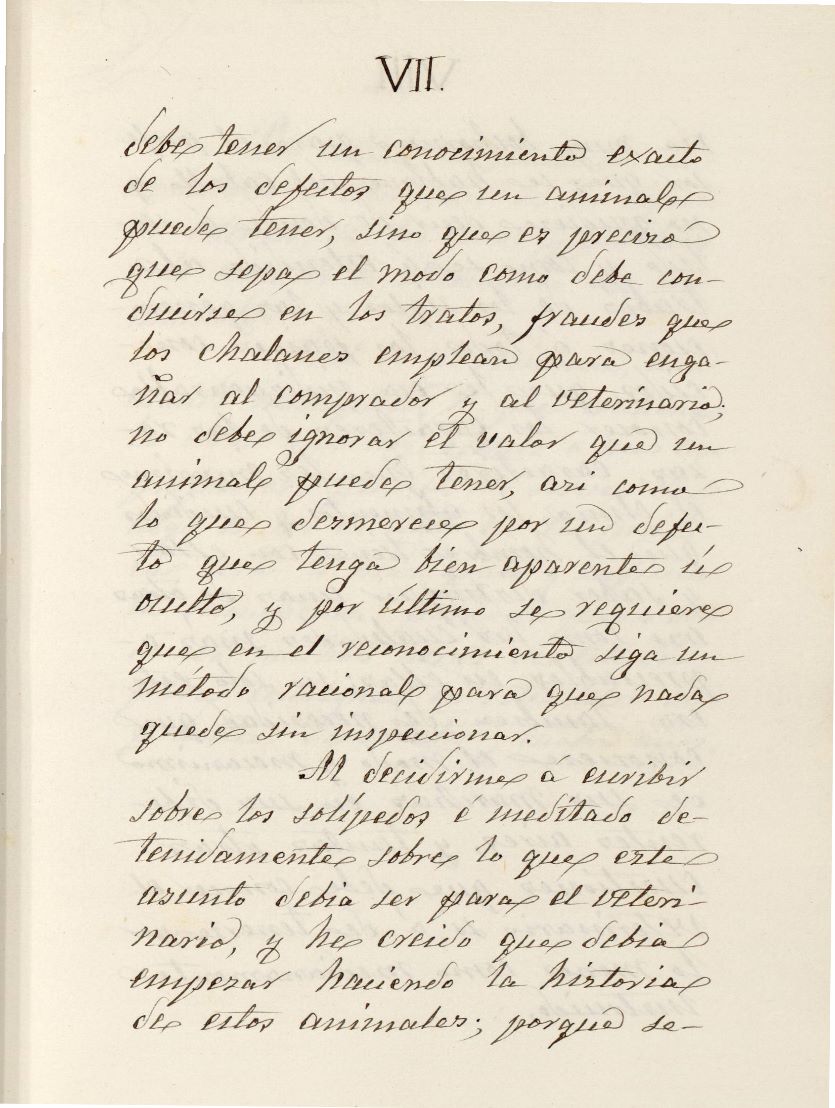 VII.
debe tener un conocimiento exacto
de los defectos que un animal
puede tener, sino que es preciso
que sepa el modo como debe con-
ducirse en los tratos, fraudes que
los chalanes emplean para enga-
ñar al comprador y al veterinario;
no debe ignorar el valor que un
animal puede tener, asi como
lo que desmerece por un defec-
to que tenga bien aparente ú
oculto, y por último se requiere
que en el reconocimiento siga un
método racional para que nada
quede sin inspeccionar.
Al decidirme á escribir
sobre los solípedos é meditado de-
tenidamente sobre lo que este
asunto debia ser para el veteri-
nario, y he creido que debia
empezar haciendo la historia
de estos animales; porque se-